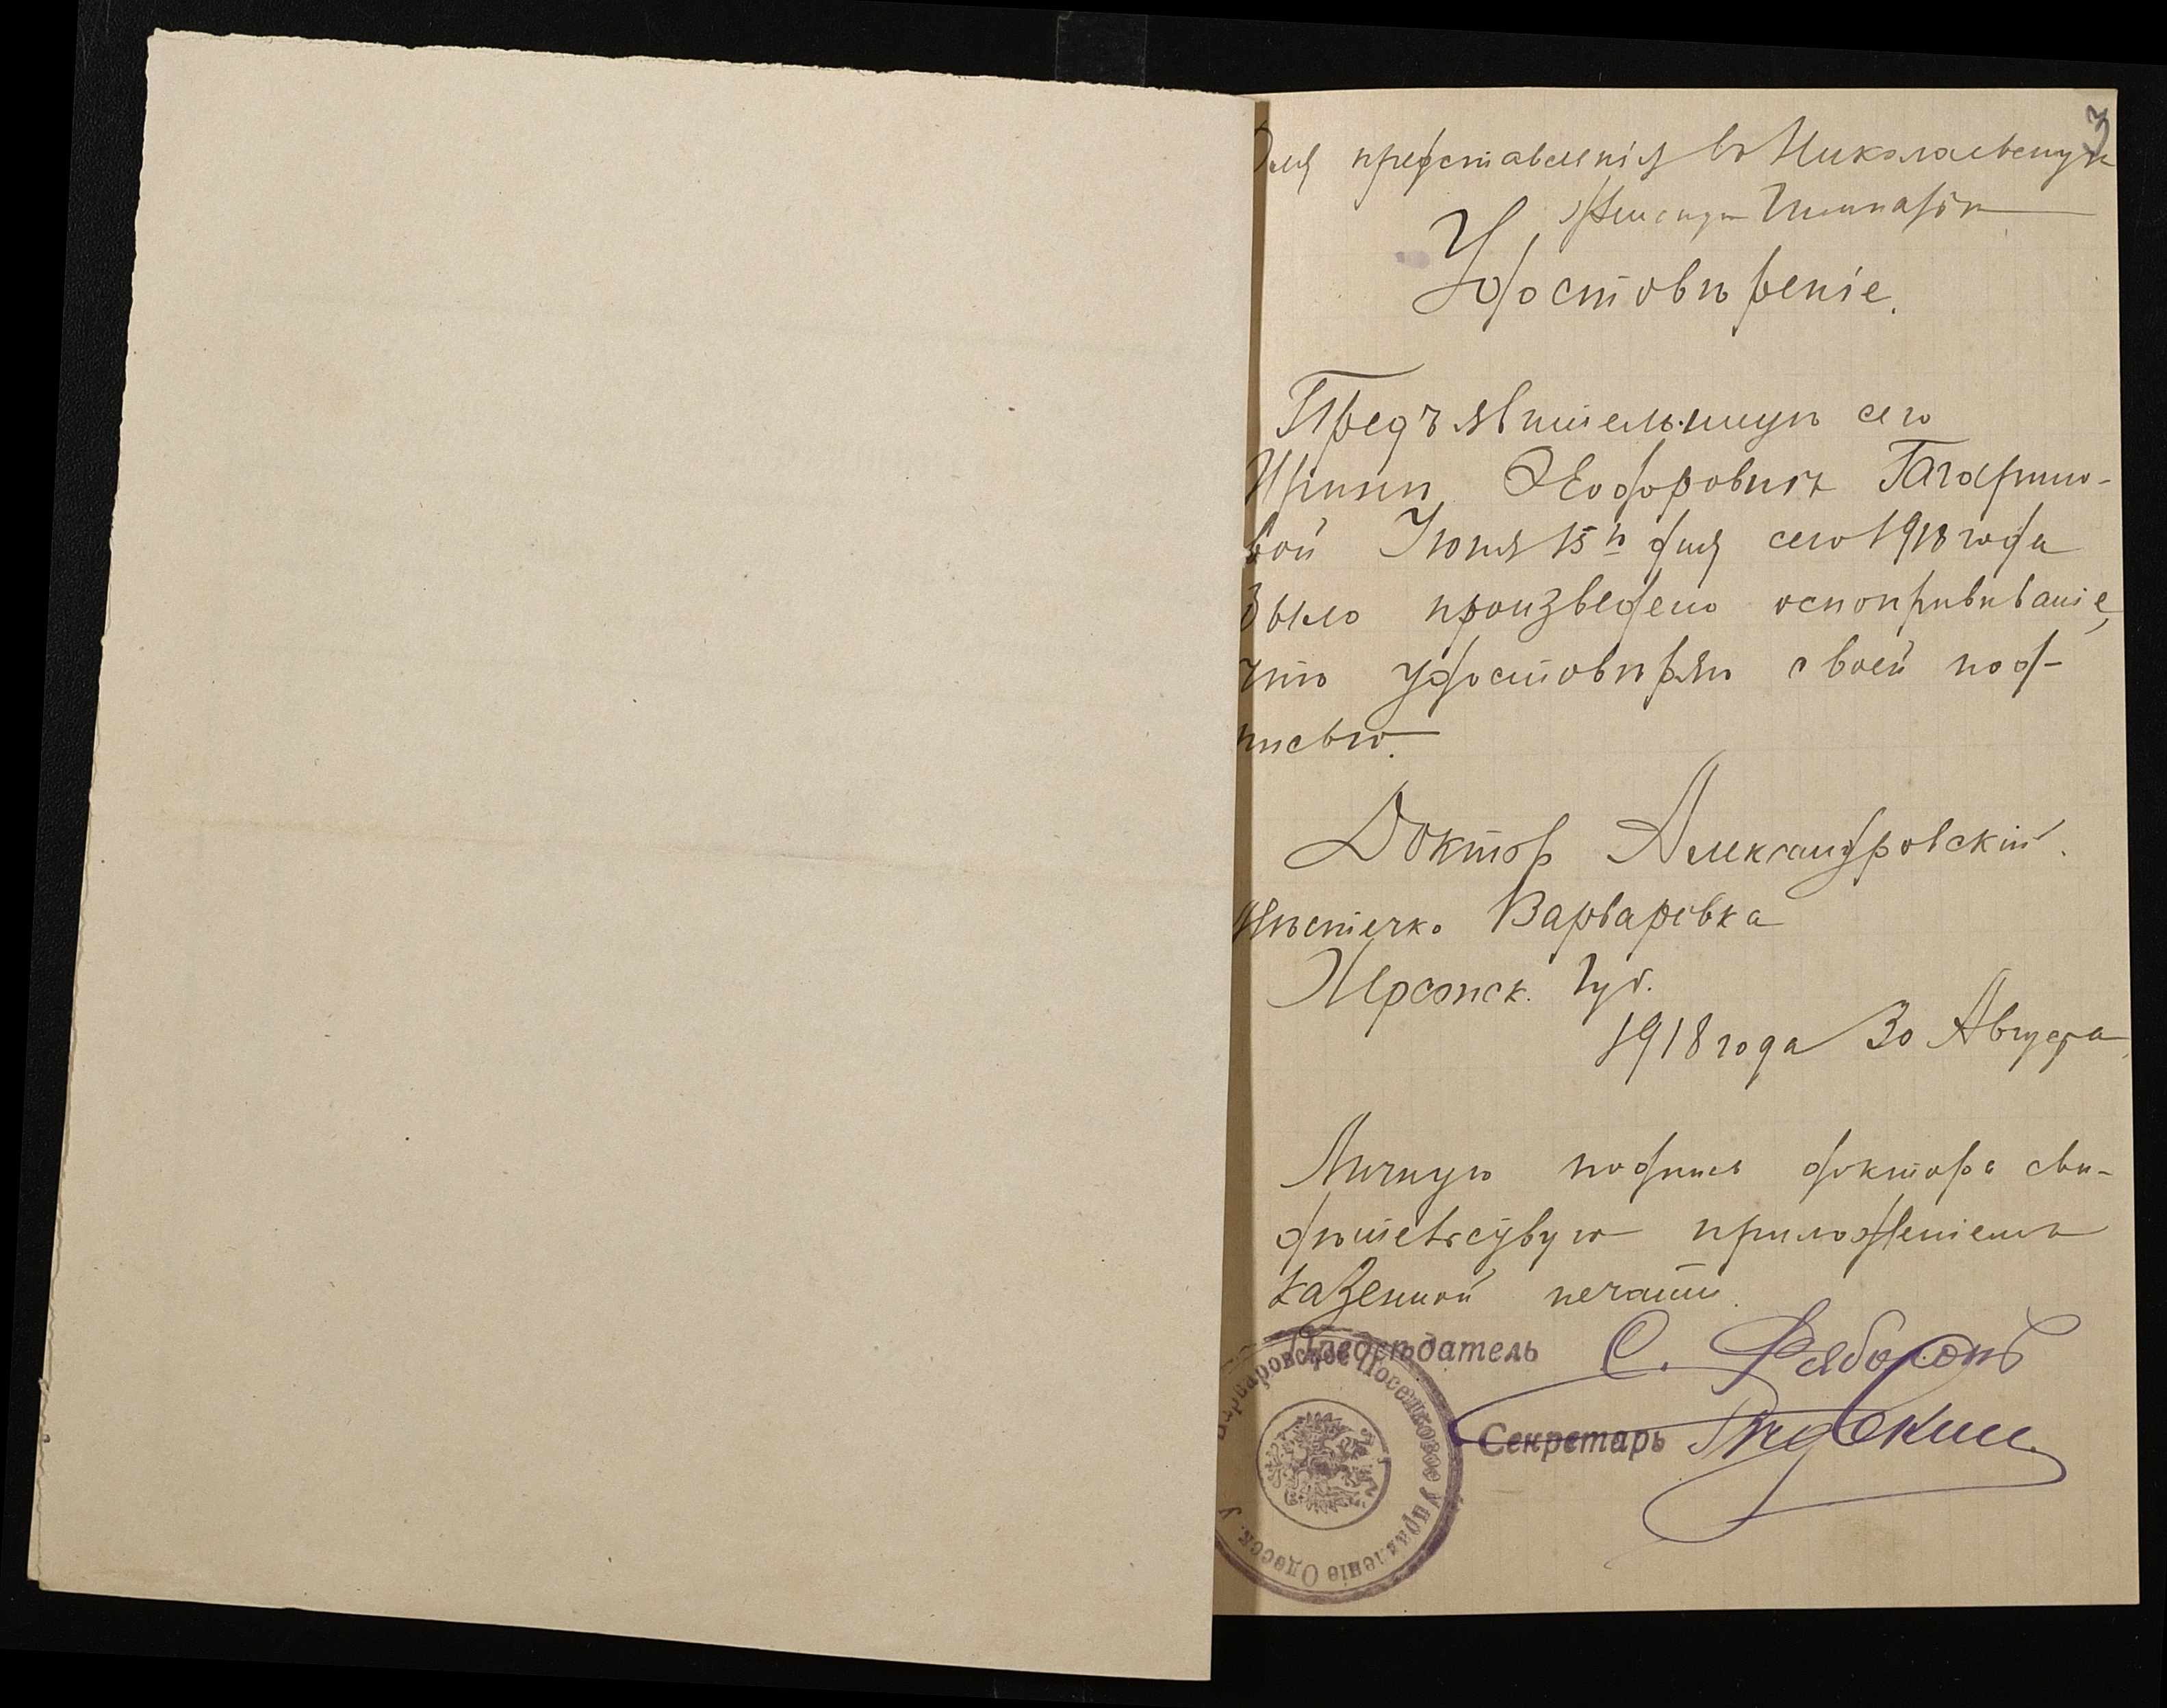 3
Для представленія въ Николаевскую
Женскую Гимназію
Удостовѣреніе.
Предъявительницѣ сего
Иринѣ Ѳеодоровнѣ Гагарино-
вой Іюня 15го дня сего 1918 года
было произведено оспопрививаніе,
что удостовѣряю своей под-
писью.
Докторъ Александровскій.
Мѣстечко Варваровка
Херсонск. Губ.
1918 года 30 Августа
Личную подпись доктора сви-
дѣтельствую приложеніемъ
казенной печати.
Предсѣдатель С.
Секретарь
Варваровское Поселковое Управленіе Одесск. у.